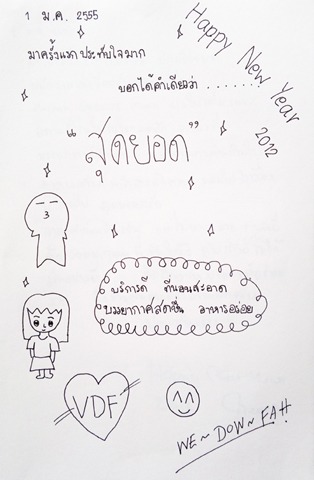 1 ม.ค. 2555
Happy New Year
2012
มาครั้งแรก ประทับใจมาก
บอกได้คำเดียวว่า ........
“สุดยอด”
บริการดี ที่นอนสะอาด
บรรยากาศสดชื่น อาหารอร่อย
VDF
WE~DOW~FAH